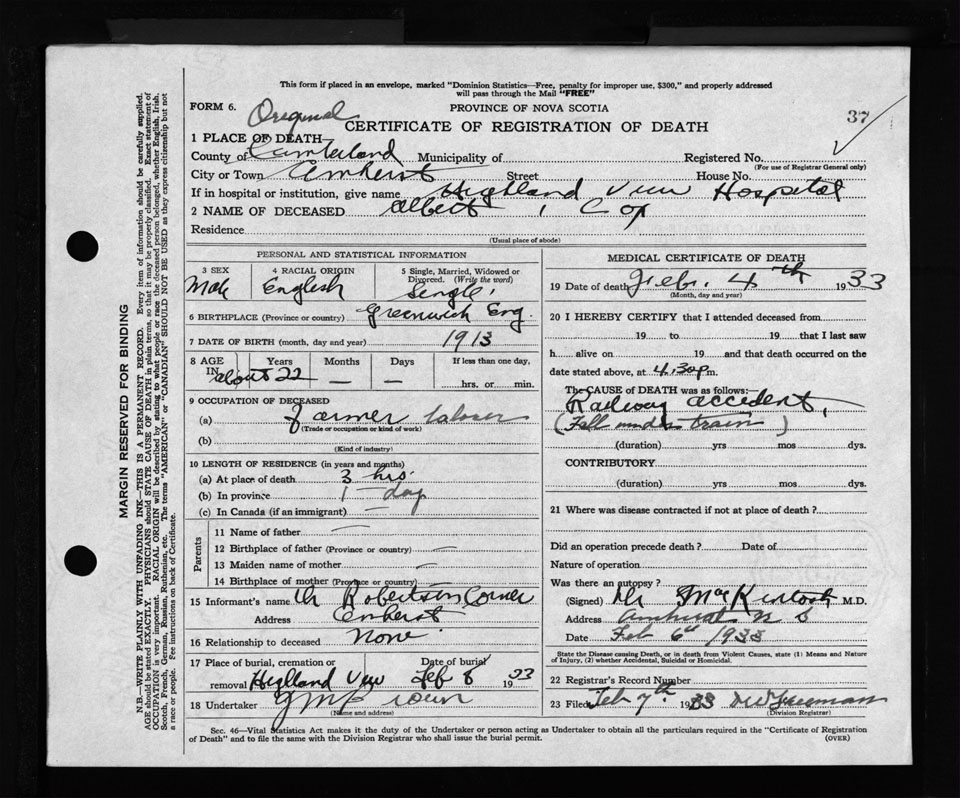 This form if placed in an envelope, marked "Dominion Statistics—Free, penalty for improper use, $300," and properly addressed
will pass through the Mail "FREE"
FORM 6.
Original
PROVINCE OF NOVA SCOTIA
37
CERTIFICATE OF REGISTRATION OF DEATH
1 PLACE OF DEATH
County of Cumberland Municipality of Registered No.
(For use of Registrar General only)
City or Town Amherst Street House No.
If in hospital or institution, give name Highland View Hospital
2 NAME OF DECEASED Albert Cox
Residence
(Usual place of abode)
PERSONAL AND STATISTICAL INFORMATION
3 SEX
Male
4 RACIAL ORIGIN
English
5 Single, Married, Widowed or
Divorced. (Write the word)
Single
6 BIRTHPLACE (Province or country) Greenwich Eng
7 DATE OF BIRTH (month, day and year) 1913
8 AGE Years Months Days If less than one day,
IN about 22 — — hrs. or min.
9 OCCUPATION OF DECEASED
(a) Farmer laborer
(Trade or occupation or kind of work)
(b)
(Kind of industry)
10 LENGTH OF RESIDENCE (in years and months)
(a) At place of death 3 hrs.
(b) In province 1 day
(c) In Canada (if an immigrant) —
Parents
11 Name of father —
12 Birthplace of father (Province or country) —
13 Maiden name of mother —
14 Birthplace of mother (Province or country) —
15 Informant's name Robertson Corner
Address Amherst
16 Relationship to deceased None
17 Place of burial, cremation or Date of burial
removal Highland View Feb 8 1933
18 Undertaker
(Name and address)
MEDICAL CERTIFICATE OF DEATH
19 Date of death Feb. 4th 1933
(Month, day and year)
20 I HEREBY CERTIFY that I attended deceased from
19 to 19 that I last saw
h alive on 19 and that death occurred on the
date stated above, at 4.30 p m.
The CAUSE of DEATH was as follows:—
Railway accident,
(Fall under train)
(duration) yrs mos dys.
CONTRIBUTORY
(duration) yrs mos dys.
21 Where was disease contracted if not at place of death?
Did an operation precede death? Date of
Nature of operation
Was there an autopsy?
(Signed) Dr MacKintosh M.D.
Address Amherst N S
Date Feb 6th 1933
State the Disease causing Death, or in death from Violent Causes, state (1) Means and Nature
of Injury, (2) whether Accidental, Suicidal or Homicidal.
22 Registrar's Record Number
23 Filed Feb 7th 1933 Freeman
(Division Registrar)
Sec. 46—Vital Statistics Act makes it the duty of the Undertaker or person acting as Undertaker to obtain all the particulars required in the "Certificate of Registration
of Death" and to file the same with the Division Registrar who shall issue the burial permit. (OVER)
MARGIN RESERVED FOR BINDING
N.B.—WRITE PLAINLY WITH UNFADING INK—THIS IS A PERMANENT RECORD. Every item of information should be carefully supplied.
AGE should be stated EXACTLY. PHYSICIANS should STATE CAUSE OF DEATH in plain terms, so that it may be properly classified. Exact statement of
OCCUPATION is very important. RACIAL ORIGIN will be described by stating to what people or race the deceased person belonged, whether English, Irish,
Scotch, French, German, Russian, Ruthenian, etc. The terms "AMERICAN" or "CANADIAN" SHOULD NOT BE USED as they express citizenship but not
a race or people. See instructions on back of Certificate.